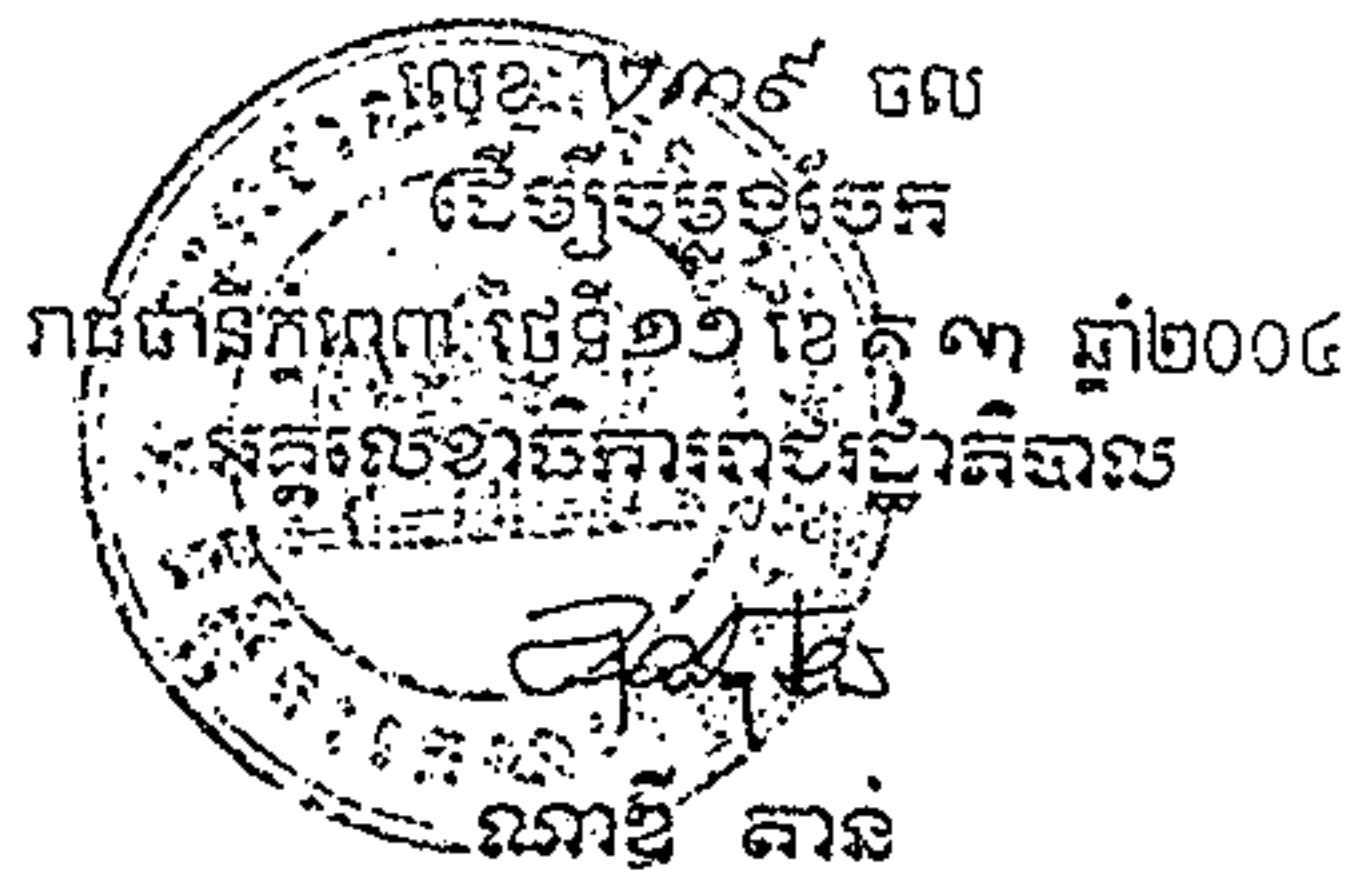 លេខ: ២៣៩ ចល
ដើម្បីចម្លងចែក
រាជធានីភ្នំពេញ ថ្ងៃទី ១១ ខែ តុលា ឆ្នាំ២០០៤
អគ្គលេខាធិការរាជរដ្ឋាភិបាល
ណាឌី តាន់